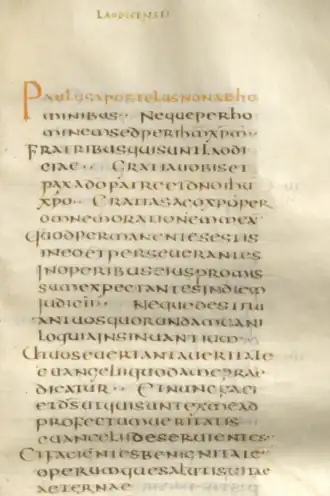 LAODICENSES
PAULUSAPOSTOLUSNONABHO
MINIBUS·· NEQUEPERHO
MINEMSEDPERIHMXPM··
FRATRIBUSQUISUNTLAODI
CIAE·· GRATIAUOBISET
PAXADOPATREETDNOIHU
XPO·· GRATIASAGOXPOPER
OMNEMORATIONEMMEA
QUODPERMANENTESESTIS
INEOETPERSEUERANTES
INOPERIBUSEIUSPROMIS
SUMEXPECTANTESINDIEM
IUDICII·· NEQUEDESTITU
ANTUOSQUORUNDAMUANI
LOQUIAINSINUANTIUM··
UTUOSEUERTANTAUERITATE
EUANGELIIQUODAMEPRAE
DICATUR·· ETNUNCFACI
ETDSUTQUISUNTEXMEAD
PROFECTUMUERITATIS
EUANGELIIDESERUIENTES
ETFACIENTESBENIGNITATE
OPERUMQUESALUTISUITAE
AETERNAE